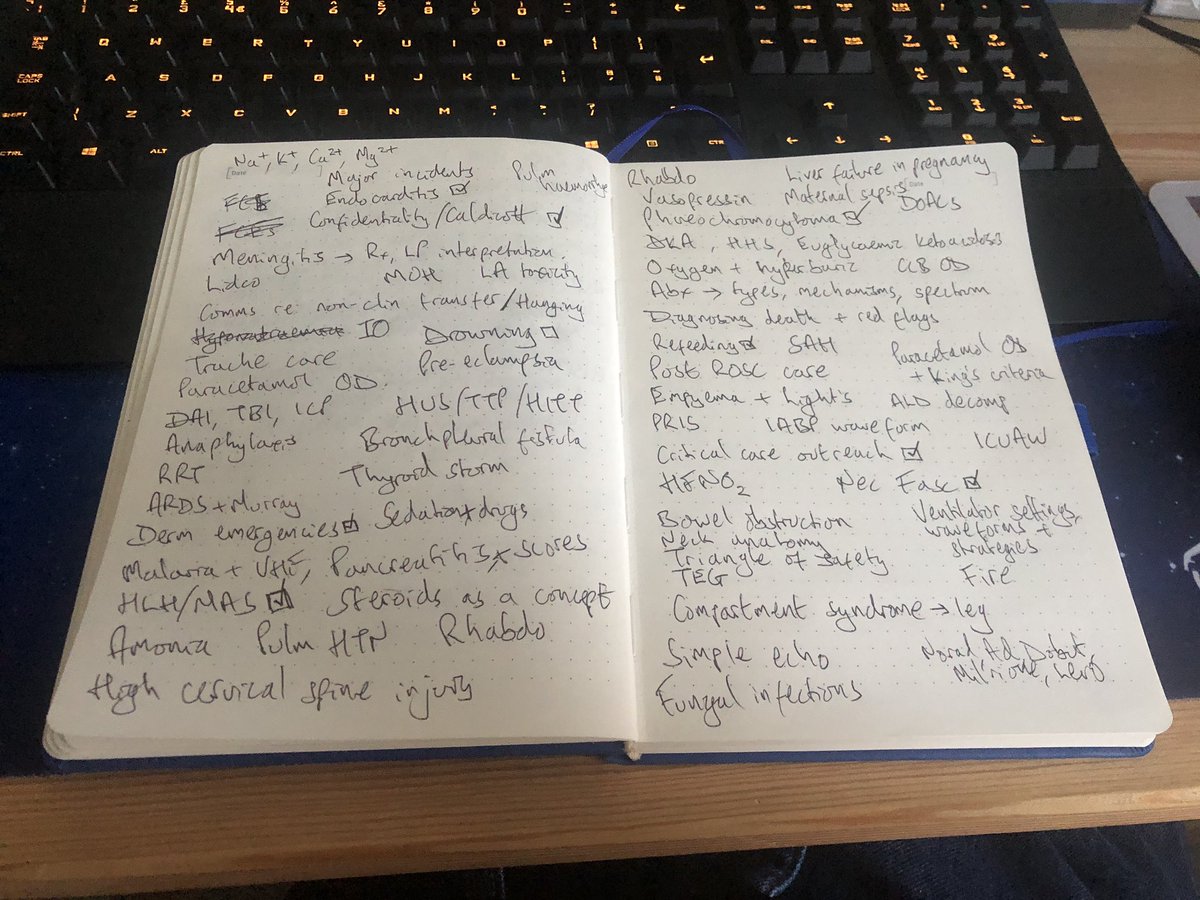 Q W E R T Y U I O P
CAPS LOCK A S D F G H J K L
SHIFT Z X C V B N M
CTRL ALT CTR
Na⁺, K⁺, Ca²⁺, Mg²⁺
Date
Major incidents Pulm haemorrhage
Endocarditis ☑
Confidentiality/Caldicott ☑
Meningitis → Rx, LP interpretation.
Lidco MOH LA toxicity
Comms re: non-clin transfer/Hanging
IO Drowning ☐
Trache care Pre-eclampsia
Paracetamol OD.
DAI, TBI, ICP HUS/TTP/HITT
Anaphylaxis Bronchpleural fistula
RRT Thyroid storm
ARDS + Murray
Derm emergencies ☑ Sedation + drugs
Malaria + VHF, Pancreatitis + scores
HLH/MAS ☑ Steroids as a concept
Amonia Pulm HTN Rhabdo
High cervical spine injury
Rhabdo Liver failure in pregnancy
Vasopressin Maternal sepsis DOACs
Phaeochromocytoma ☑
DKA, HHS, Euglycaemic ketoacidosis
Oxygen + hyperbaric CCB OD
Abx → types, mechanisms, spectrum
Diagnosing death + red flags
Refeeding ☑ SAH Paracetamol OD
Post ROSC care + King's criteria
Empyema + Light's ALD decomp
PRIS IABP waveform
Critical care outreach ☑ ICUAW
HFNO₂ Nec Fasc ☑
Bowel obstruction Ventilator settings,
Neck anatomy waveforms +
Triangle of safety strategies
TEG Fire
Compartment syndrome → leg
Simple echo Norad, Ad, Dobut,
Milrinone, Levo
Fungal infections